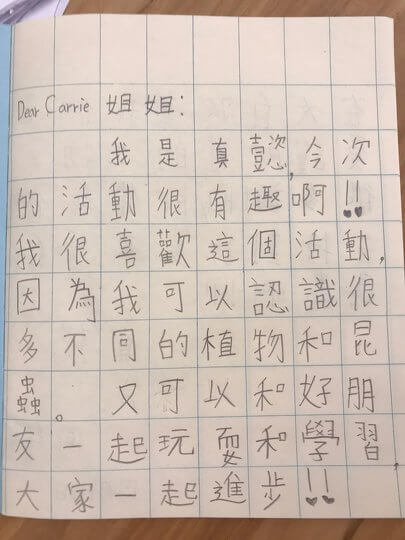 Dear Carrie 姐姐：
我是真懿,今次
的活動很有趣啊!!
我很喜歡這個活動,
因為我可以認識很
多不同的植物和昆
蟲。又可以和好朋
友一起玩耍和學習,
大家一起進步!!